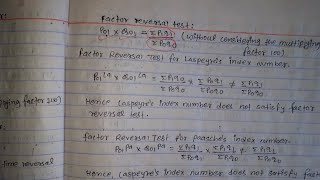 Factor reversal test:
P01 × Q01 = ΣP1q1 / ΣP0q0 (without considering the multiplying factor 100)
Factor Reversal Test for Laspeyre's Index number.
P01^La × Q01^La = ΣP1q0 / ΣP0q0 × ΣP0q1 / ΣP0q0 ≠ ΣP1q1 / ΣP0q0
plying factor 100)
Hence Laspeyre's index number does not satisfy factor
reversal test.
Factor Reversal Test for Paasche's index number.
time reversal
P01^Pa × Q01^Pa = ΣP1q1 / ΣP0q1 × ΣP1q1 / ΣP1q0 ≠ ΣP1q1 / ΣP0q0
Hence, Laspeyre's Index number does not satisfy